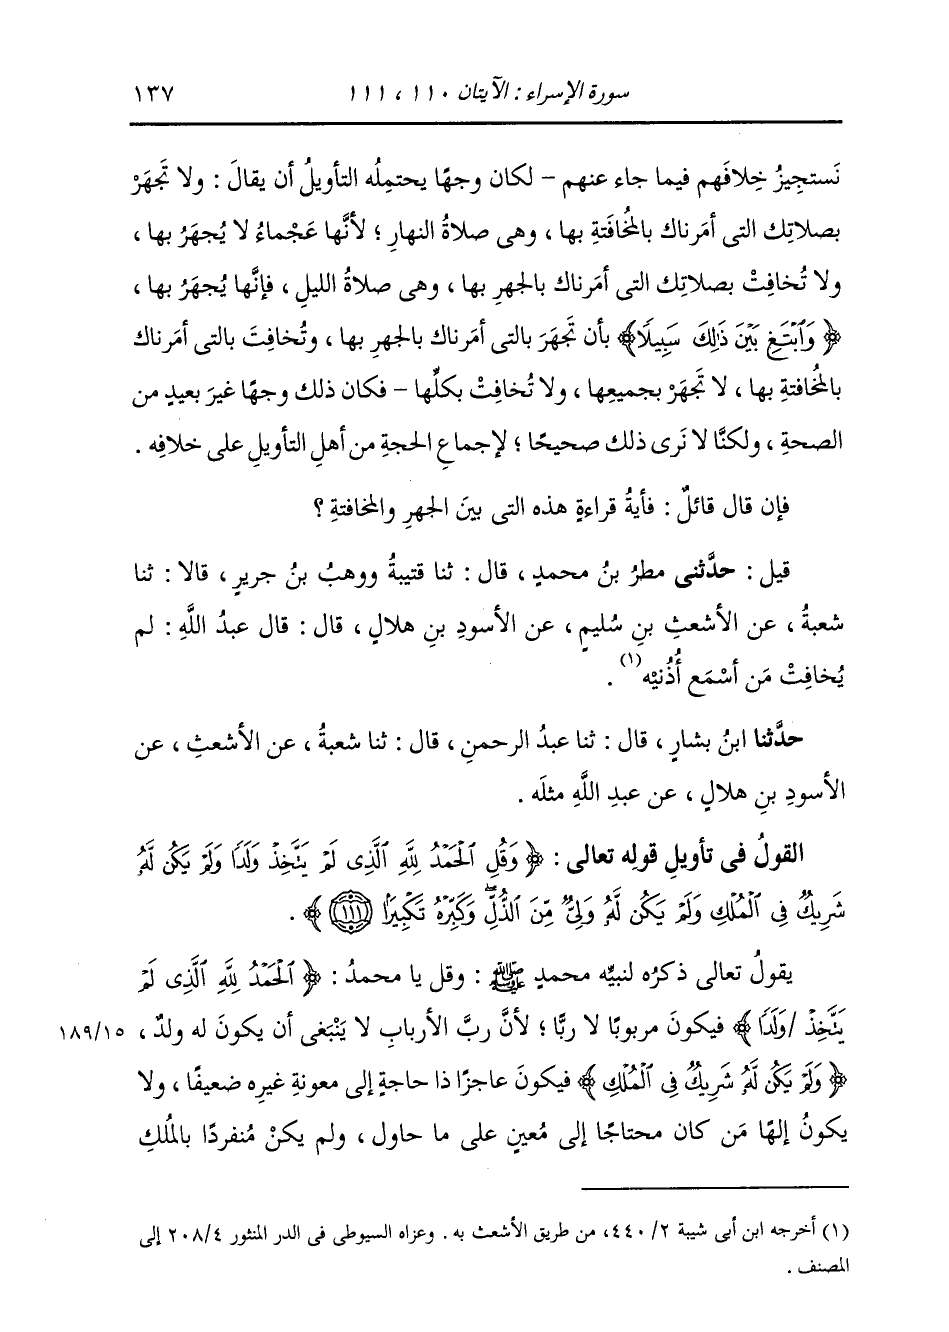 سورة الإسراء : الآيتان ١١٠ ، ١١١ ١٣٧
نَستجِيزُ خِلافَهم فيما جاء عنهم – لكان وجهًا يحتمِلُه التأويلُ أن يقالَ : ولا تَجهَرْ
بصلاتِك التى أمَرناك بالمُخافَتةِ بها ، وهى صلاةُ النهارِ ؛ لأنَّها عَجْماءُ لا يُجهَرُ بها ،
ولا تُخافِتْ بصلاتِك التى أمَرناك بالجهرِ بها ، وهى صلاةُ الليلِ ، فإنَّها يُجهَرُ بها ،
﴿ وَٱبْتَغِ بَيْنَ ذَٰلِكَ سَبِيلًا ﴾ بأن تَجهَرَ بالتى أمَرناك بالجهرِ بها ، وتُخافِتَ بالتى أمَرناك
بالمُخافتةِ بها ، لا تَجهَرْ بجميعِها ، ولا تُخافِتْ بكلِّها – فكان ذلك وجهًا غيرَ بعيدٍ من
الصحةِ ، ولكنَّا لا نَرى ذلك صحيحًا ؛ لإجماعِ الحجةِ من أهلِ التأويلِ على خلافِه .
فإن قال قائلٌ : فأيةُ قراءةٍ هذه التى بينَ الجهرِ والمخافتةِ ؟
قيل : حدَّثنى مطرُ بنُ محمدٍ ، قال : ثنا قتيبةُ ووهبُ بنُ جريرٍ ، قالا : ثنا
شعبةُ ، عن الأشعثِ بنِ سُليمٍ ، عن الأسودِ بنِ هلالٍ ، قال : قال عبدُ اللَّهِ : لم
يُخافِتْ مَن أسْمَع أُذُنيْه(١) .
حدَّثنا ابنُ بشارٍ ، قال : ثنا عبدُ الرحمنِ ، قال : ثنا شعبةُ ، عن الأشعثِ ، عن
الأسودِ بنِ هلالٍ ، عن عبدِ اللَّهِ مثلَه .
القولُ فى تأويلِ قولِه تعالى : ﴿ وَقُلِ ٱلْحَمْدُ لِلَّهِ ٱلَّذِى لَمْ يَتَّخِذْ وَلَدًا وَلَمْ يَكُن لَّهُۥ
شَرِيكٌ فِى ٱلْمُلْكِ وَلَمْ يَكُن لَّهُۥ وَلِىٌّ مِّنَ ٱلذُّلِّ وَكَبِّرْهُ تَكْبِيرًۢا (١١١) ﴾ .
يقولُ تعالى ذكرُه لنبيِّه محمدٍ ﷺ : وقل يا محمدُ : ﴿ ٱلْحَمْدُ لِلَّهِ ٱلَّذِى لَمْ
يَتَّخِذْ /وَلَدًا ﴾ فيكونَ مربوبًا لا ربًّا ؛ لأنَّ ربَّ الأربابِ لا يَنْبَغى أن يكونَ له ولدٌ ، ١٨٩/١٥
﴿ وَلَمْ يَكُن لَّهُۥ شَرِيكٌ فِى ٱلْمُلْكِ ﴾ فيكونَ عاجزًا ذا حاجةٍ إلى معونةِ غيرِه ضعيفًا ، ولا
يكونُ إلهًا مَن كان محتاجًا إلى مُعينٍ على ما حاول ، ولم يكنْ مُنفردًا بالمُلكِ
(١) أخرجه ابن أبى شيبة ٢/ ٤٤٠، من طريق الأشعث به . وعزاه السيوطى فى الدر المنثور ٢٠٨/٤ إلى
المصنف .